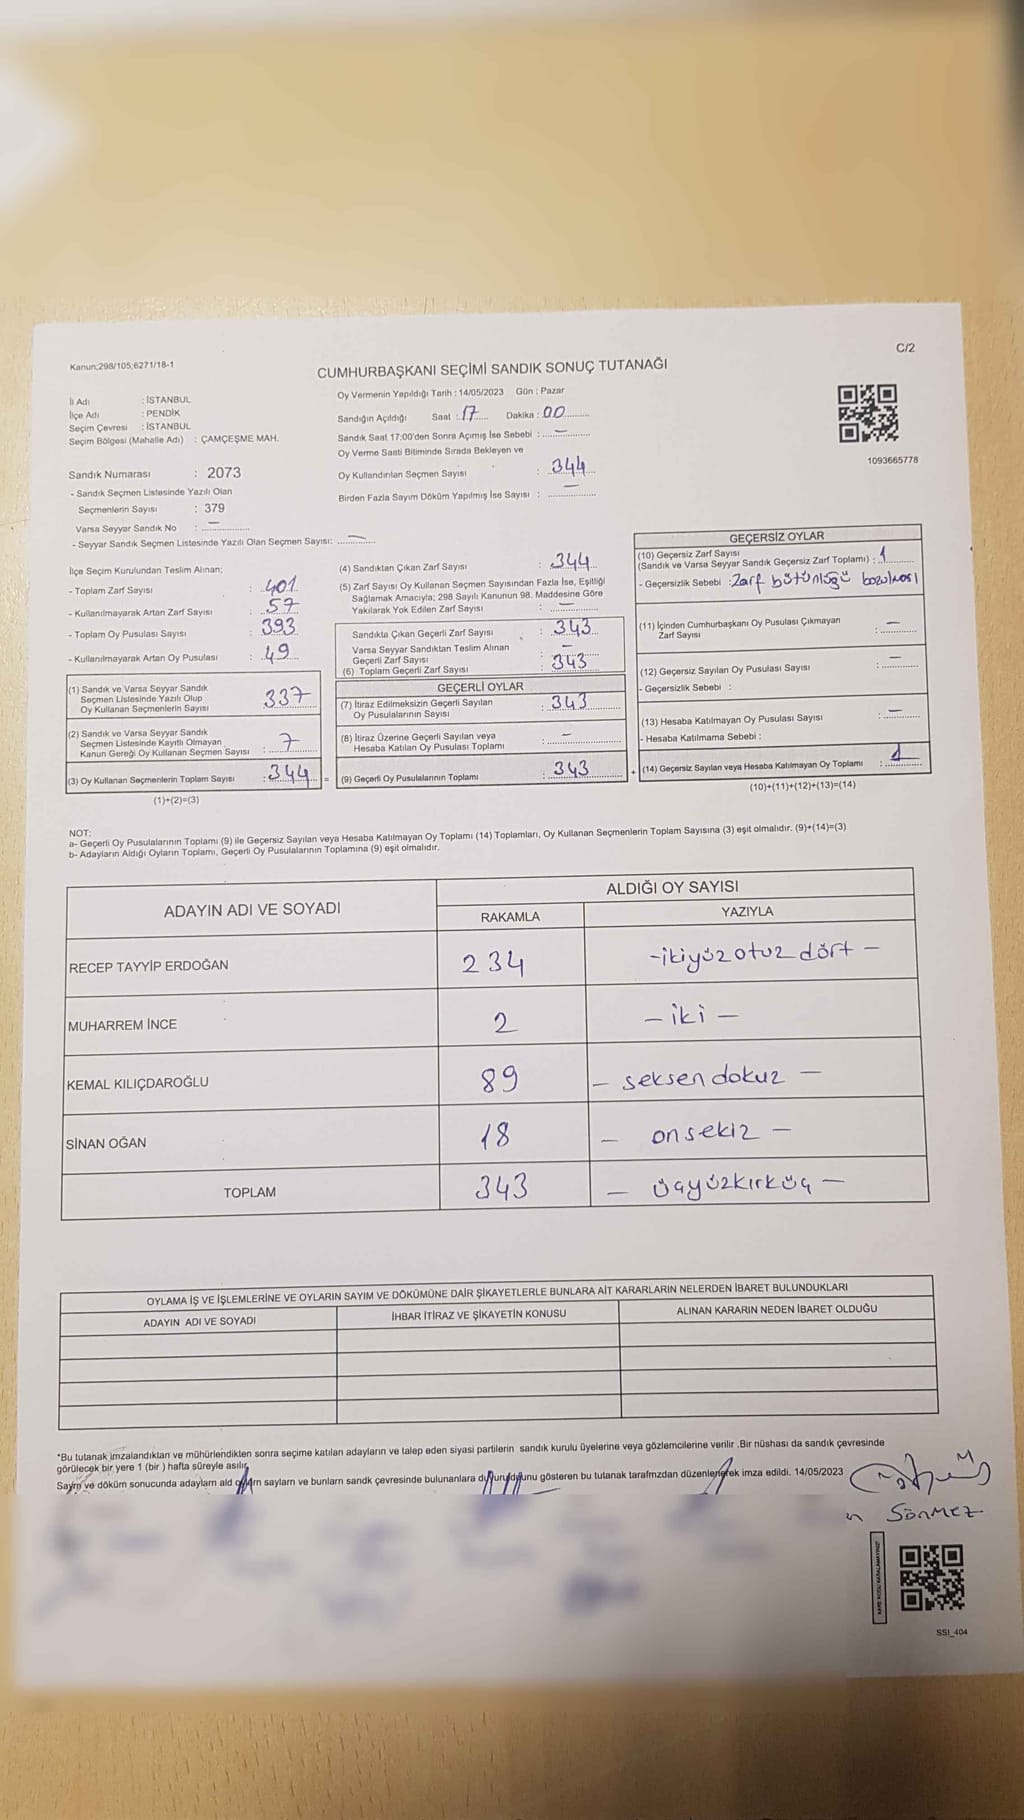 Kanun;298/105;6271/18-1
C/2
CUMHURBAŞKANI SEÇİMİ SANDIK SONUÇ TUTANAĞI
İl Adı : İSTANBUL
İlçe Adı : PENDİK
Seçim Çevresi : İSTANBUL
Seçim Bölgesi (Mahalle Adı) : ÇAMÇEŞME MAH.
Sandık Numarası : 2073
- Sandık Seçmen Listesinde Yazılı Olan
Seçmenlerin Sayısı : 379
Varsa Seyyar Sandık No : —
- Seyyar Sandık Seçmen Listesinde Yazılı Olan Seçmen Sayısı: —
Oy Vermenin Yapıldığı Tarih : 14/05/2023 Gün : Pazar
Sandığın Açıldığı Saat : 17 Dakika : 00
Sandık Saat 17:00'den Sonra Açımış İse Sebebi : —
Oy Verme Saati Bitiminde Sırada Bekleyen ve
Oy Kullandırılan Seçmen Sayısı : 344
Birden Fazla Sayım Döküm Yapılmış İse Sayısı : —
1093665778
İlçe Seçim Kurulundan Teslim Alınan;
- Toplam Zarf Sayısı : 401
- Kullanılmayarak Artan Zarf Sayısı : 57
- Toplam Oy Pusulası Sayısı : 393
- Kullanılmayarak Artan Oy Pusulası : 49
(1) Sandık ve Varsa Seyyar Sandık
Seçmen Listesinde Yazılı Olup
Oy Kullanan Seçmenlerin Sayısı 337
(2) Sandık ve Varsa Seyyar Sandık
Seçmen Listesinde Kayıtlı Olmayan
Kanun Gereği Oy Kullanan Seçmen Sayısı : 7
(3) Oy Kullanan Seçmenlerin Toplam Sayısı : 344 =
(1)+(2)=(3)
(4) Sandıktan Çıkan Zarf Sayısı : 344
(5) Zarf Sayısı Oy Kullanan Seçmen Sayısından Fazla İse, Eşitliği
Sağlamak Amacıyla; 298 Sayılı Kanunun 98. Maddesine Göre
Yakılarak Yok Edilen Zarf Sayısı : —
Sandıkta Çıkan Geçerli Zarf Sayısı : 343
Varsa Seyyar Sandıktan Teslim Alınan
Geçerli Zarf Sayısı : —
(6) Toplam Geçerli Zarf Sayısı : 343
GEÇERLİ OYLAR
(7) İtiraz Edilmeksizin Geçerli Sayılan
Oy Pusulalarının Sayısı : 343
(8) İtiraz Üzerine Geçerli Sayılan veya
Hesaba Katılan Oy Pusulası Toplamı : —
(9) Geçerli Oy Pusulalarının Toplamı : 343 +
GEÇERSİZ OYLAR
(10) Geçersiz Zarf Sayısı
(Sandık ve Varsa Seyyar Sandık Geçersiz Zarf Toplamı) : 1
- Geçersizlik Sebebi : Zarf bütünlüğü bozulması
(11) İçinden Cumhurbaşkanı Oy Pusulası Çıkmayan
Zarf Sayısı : —
(12) Geçersiz Sayılan Oy Pusulası Sayısı : —
- Geçersizlik Sebebi :
(13) Hesaba Katılmayan Oy Pusulası Sayısı : —
- Hesaba Katılmama Sebebi :
(14) Geçersiz Sayılan veya Hesaba Katılmayan Oy Toplamı : 1
(10)+(11)+(12)+(13)=(14)
NOT:
a- Geçerli Oy Pusulalarının Toplamı (9) ile Geçersiz Sayılan veya Hesaba Katılmayan Oy Toplamı (14) Toplamları, Oy Kullanan Seçmenlerin Toplam Sayısına (3) eşit olmalıdır. (9)+(14)=(3)
b- Adayların Aldığı Oyların Toplamı, Geçerli Oy Pusulalarının Toplamına (9) eşit olmalıdır.
ADAYIN ADI VE SOYADI
ALDIĞI OY SAYISI
RAKAMLA YAZIYLA
RECEP TAYYİP ERDOĞAN 234 - ikiyüz otuz dört -
MUHARREM İNCE 2 - iki -
KEMAL KILIÇDAROĞLU 89 - seksen dokuz -
SİNAN OĞAN 18 - on sekiz -
TOPLAM 343 - üçyüzkırküç -
OYLAMA İŞ VE İŞLEMLERİNE VE OYLARIN SAYIM VE DÖKÜMÜNE DAİR ŞİKAYETLERLE BUNLARA AİT KARARLARIN NELERDEN İBARET BULUNDUKLARI
ADAYIN ADI VE SOYADI İHBAR İTİRAZ VE ŞİKAYETİN KONUSU ALINAN KARARIN NEDEN İBARET OLDUĞU
*Bu tutanak imzalandıktan ve mühürlendikten sonra seçime katılan adayların ve talep eden siyasi partilerin sandık kurulu üyelerine veya gözlemcilerine verilir .Bir nüshası da sandık çevresinde
görülecek bir yere 1 (bir ) hafta süreyle asılır.
Sayım ve döküm sonucunda adayların ald sayların ve bunların sandk çevresinde bulunanlara gösteren bu tutanak tarafmzdan düzenlenerek imza edildi. 14/05/2023
SÖNMEZ
SSI_404